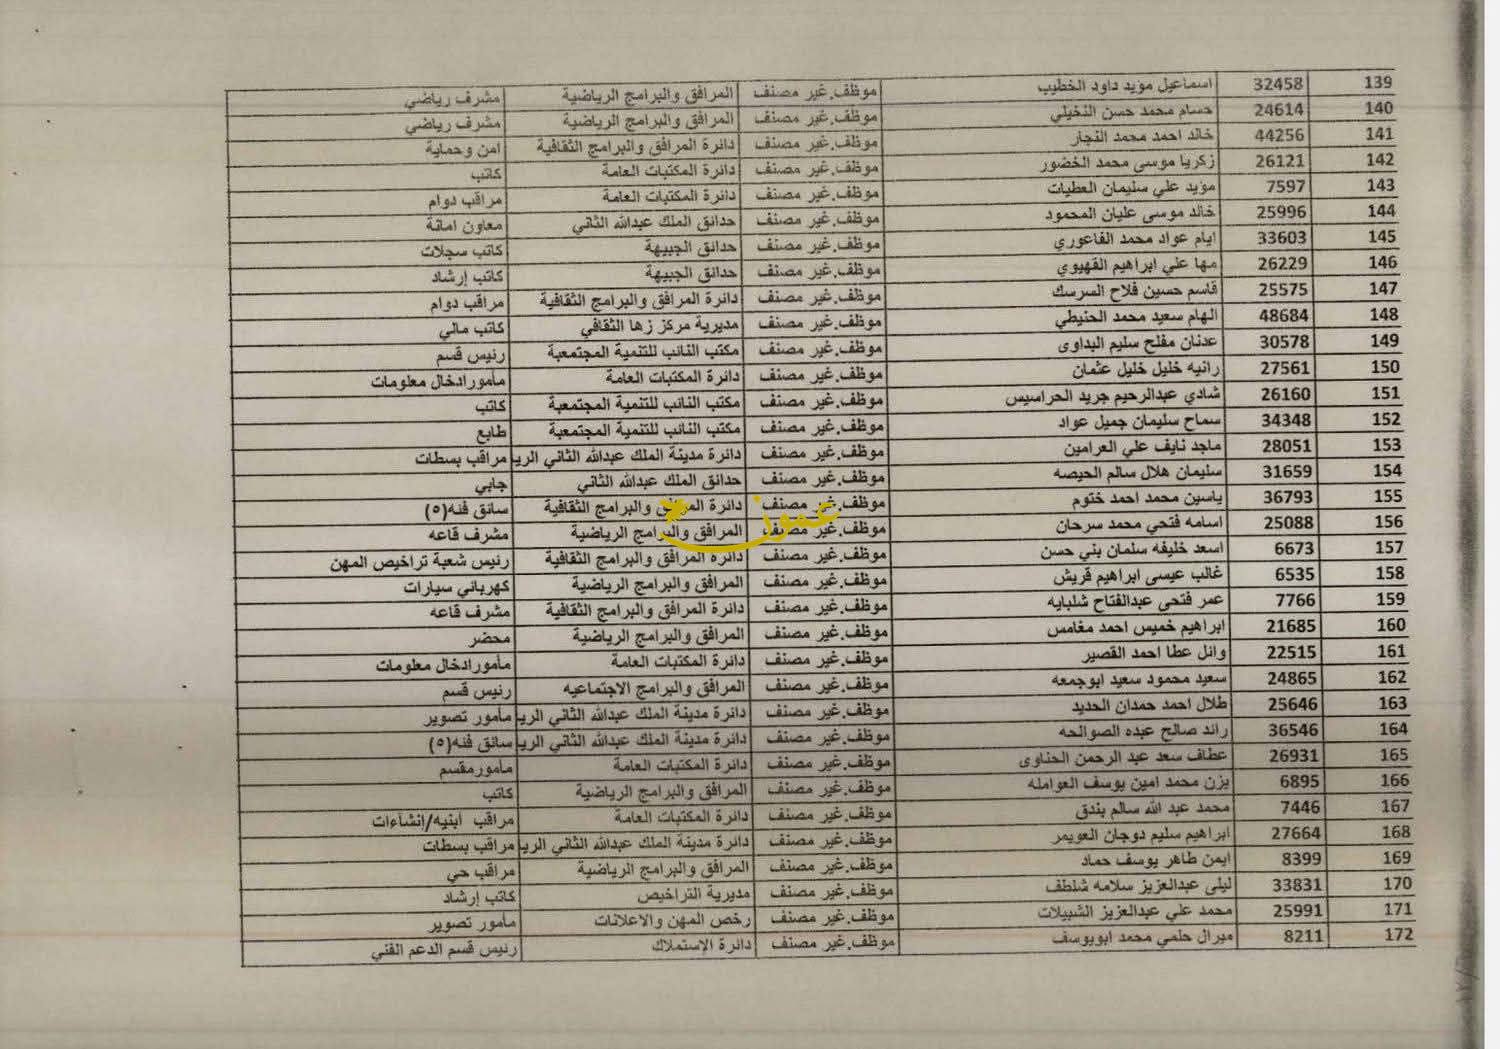 139 32458 اسماعيل مؤيد داود الخطيب موظف.غير مصنف المرافق والبرامج الرياضية مشرف رياضي
140 24614 حسام محمد حسن النخيلي موظف.غير مصنف المرافق والبرامج الرياضية مشرف رياضي
141 44256 خالد احمد محمد النجار موظف.غير مصنف دائرة المرافق والبرامج الثقافية امن وحماية
142 26121 زكريا موسى محمد الخضور موظف.غير مصنف دائرة المكتبات العامة كاتب
143 7597 مؤيد علي سليمان العطيات موظف.غير مصنف دائرة المكتبات العامة مراقب دوام
144 25996 خالد موسى عليان المحمود موظف.غير مصنف حدائق الملك عبدالله الثاني معاون امانة
145 33603 ايام عواد محمد الفاعوري موظف.غير مصنف حدائق الجبيهة كاتب سجلات
146 26229 مها علي ابراهيم القهيوي موظف.غير مصنف حدائق الجبيهة كاتب إرشاد
147 25575 قاسم حسين فلاح السرسك موظف.غير مصنف دائرة المرافق والبرامج الثقافية مراقب دوام
148 48684 الهام سعيد محمد الحنيطي موظف.غير مصنف مديرية مركز زها الثقافي كاتب مالي
149 30578 عدنان مفلح سليم البداوى موظف.غير مصنف مكتب النائب للتنمية المجتمعية رئيس قسم
150 27561 رانيه خليل خليل عثمان موظف.غير مصنف دائرة المكتبات العامة مأمورادخال معلومات
151 26160 شادي عبدالرحيم جريد الحراسيس موظف.غير مصنف مكتب النائب للتنمية المجتمعية كاتب
152 34348 سماح سليمان جميل عواد موظف.غير مصنف مكتب النائب للتنمية المجتمعية طابع
153 28051 ماجد نايف علي العرامين موظف.غير مصنف دائرة مدينة الملك عبدالله الثاني الريا مراقب بسطات
154 31659 سليمان هلال سالم الحيصه موظف.غير مصنف حدائق الملك عبدالله الثاني جابي
155 36793 ياسين محمد احمد ختوم موظف.غير مصنف دائرة المرافق والبرامج الثقافية سائق فئه(٥)
عمون
156 25088 اسامه فتحي محمد سرحان موظف.غير مصنف المرافق والبرامج الرياضية مشرف قاعه
157 6673 اسعد خليفه سلمان بني حسن موظف.غير مصنف دائرة المرافق والبرامج الثقافية رئيس شعبة تراخيص المهن
158 6535 غالب عيسى ابراهيم قريش موظف.غير مصنف المرافق والبرامج الرياضية كهربائي سيارات
159 7766 عمر فتحى عبدالفتاح شلبايه موظف.غير مصنف دائرة المرافق والبرامج الثقافية مشرف قاعه
160 21685 ابراهيم خميس احمد مغامس موظف.غير مصنف المرافق والبرامج الرياضية محضر
161 22515 وائل عطا احمد القصير موظف.غير مصنف دائرة المكتبات العامة مأمورادخال معلومات
162 24865 سعيد محمود سعيد ابوجمعه موظف.غير مصنف المرافق والبرامج الاجتماعيه رئيس قسم
163 25646 طلال احمد حمدان الحديد موظف.غير مصنف دائرة مدينة الملك عبدالله الثاني الريا مأمور تصوير
164 36546 رائد صالح عبده الصوالحه موظف.غير مصنف دائرة مدينة الملك عبدالله الثاني الريا سائق فئه(٥)
165 26931 عطاف سعد عبد الرحمن الحناوى موظف.غير مصنف دائرة المكتبات العامة مأمورمقسم
166 6895 يزن محمد امين يوسف العوامله موظف.غير مصنف المرافق والبرامج الرياضية كاتب
167 7446 محمد عبد الله سالم بندق موظف.غير مصنف دائرة المكتبات العامة مراقب ابنيه/إنشاءات
168 27664 ابراهيم سليم دوجان العويمر موظف.غير مصنف دائرة مدينة الملك عبدالله الثاني الريا مراقب بسطات
169 8399 ايمن طاهر يوسف حماد موظف.غير مصنف المرافق والبرامج الرياضية مراقب حي
170 33831 ليلى عبدالعزيز سلامه شلطف موظف.غير مصنف مديرية التراخيص كاتب إرشاد
171 25991 محمد علي عبدالعزيز الشبيلات موظف.غير مصنف رخص المهن والاعلانات مأمور تصوير
172 8211 ميرال حلمي محمد ابويوسف موظف.غير مصنف دائرة الإستملاك رئيس قسم الدعم الفني